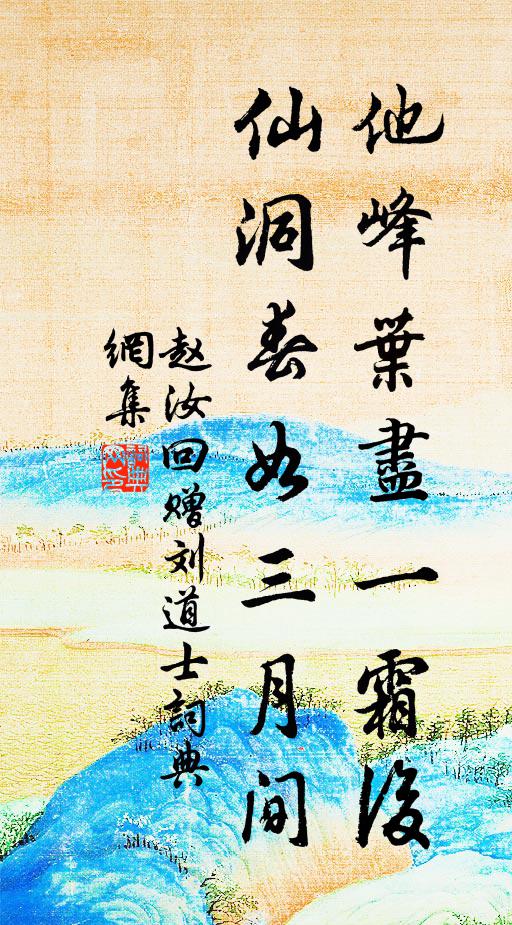 他峰葉盡一霜後
仙洞春如三月間
赵汝回赠刘道士詞典
網集